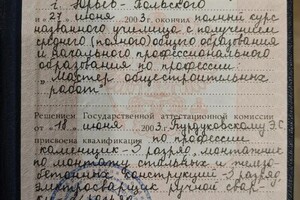 г. Юрьев-Польского
и "27" июня 2003 г. окончил полный курс
названного училища с получением
среднего (полного) общего образования
и начального профессионального
образования по профессии
"Мастер общестроительных
работ"
Решением Государственной аттестационной комиссии
от "18" июня 2003 г. Э.С.
присвоена квалификация по профессии
каменщик-3 разряд, монтажник
по монтажу стальных и железо-
бетонных конструкций-3 разряд
электросварщик ручной свар-